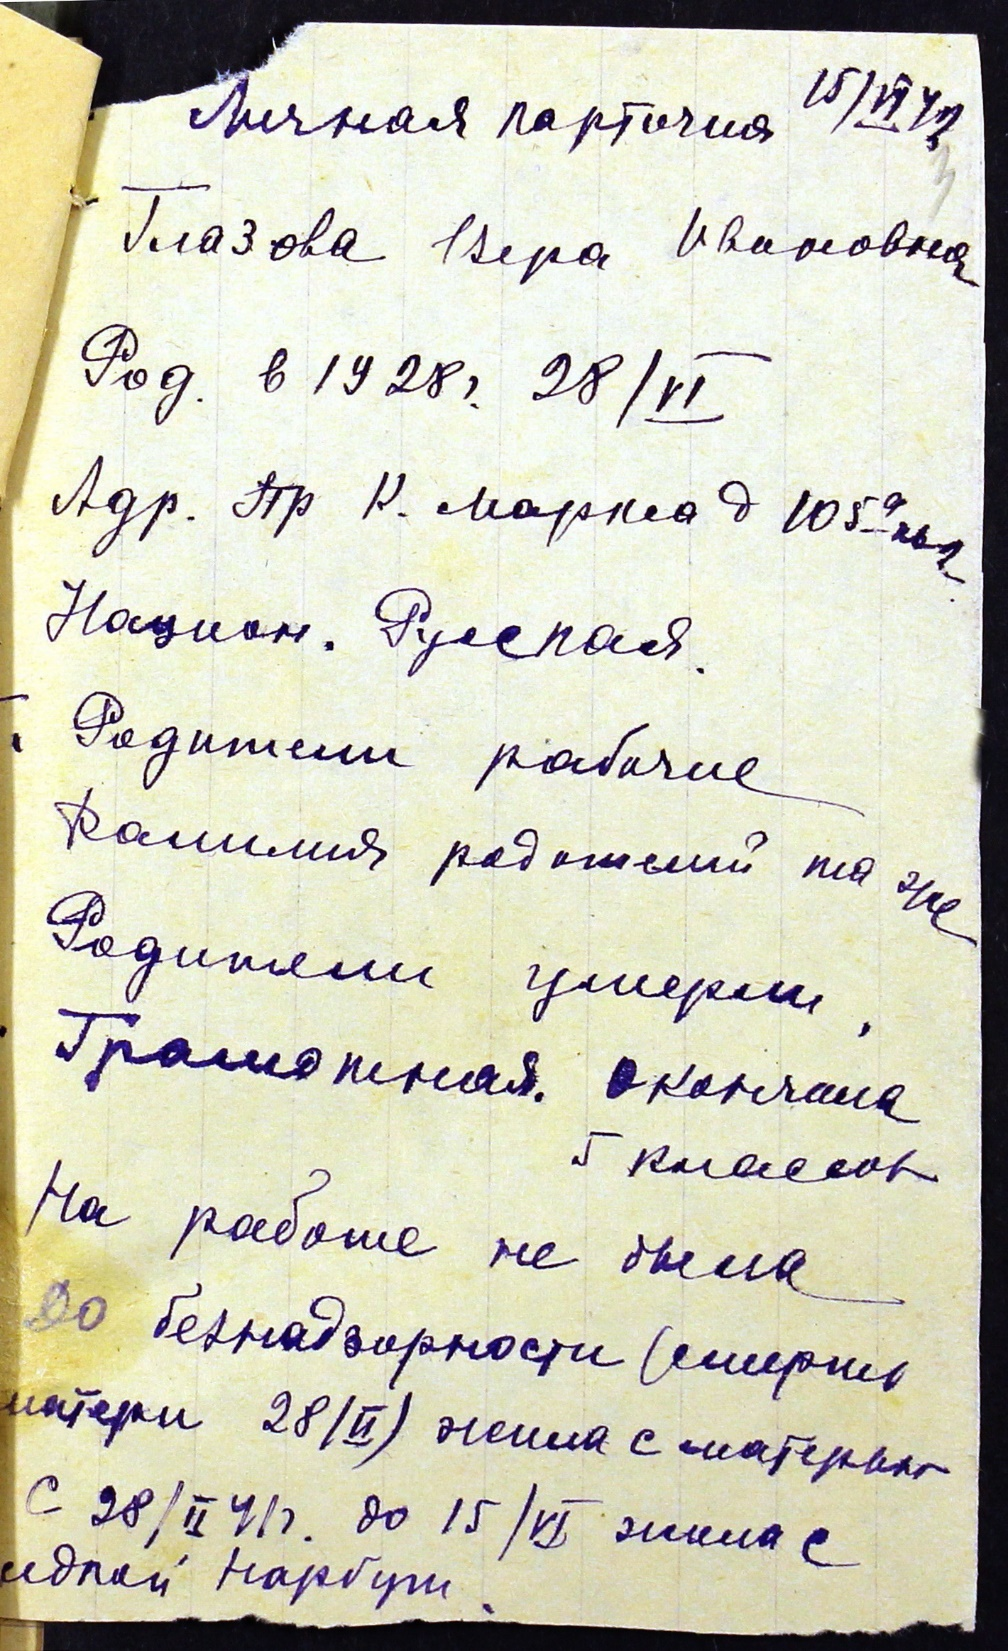 Личная карточка 15/VI 42
Глазова Вера Ивановна
Род. в 1928г. 28/VI
Адр. Пр К. Маркса д 105а кв 2.
Национ. Русская.
Родители рабочие
Фамилия родителей та же
Родители умерли,
Грамотная. окончила
5 классов
На работе не была
До безнадзорности (смерть
матери 28/II) жила с матерью
С 28/II 41г. до 15/VI жила с
Нарбут.